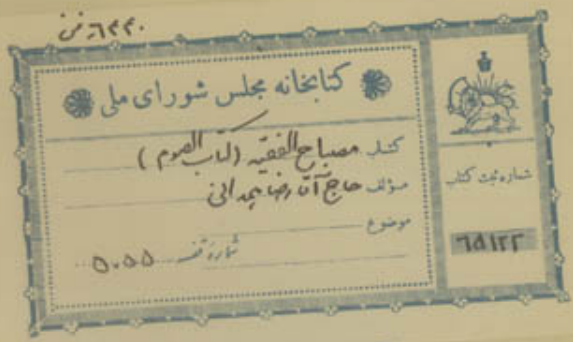 ۶۴۴۰
کتابخانه مجلس شورای ملی
کتاب مصباح الفقیه (کتاب الصوم)
مؤلف حاج آقا رضا همدانی
موضوع
شماره قفسه ۵۰۵۵
شماره ثبت کتاب
۶۵۱۲۲